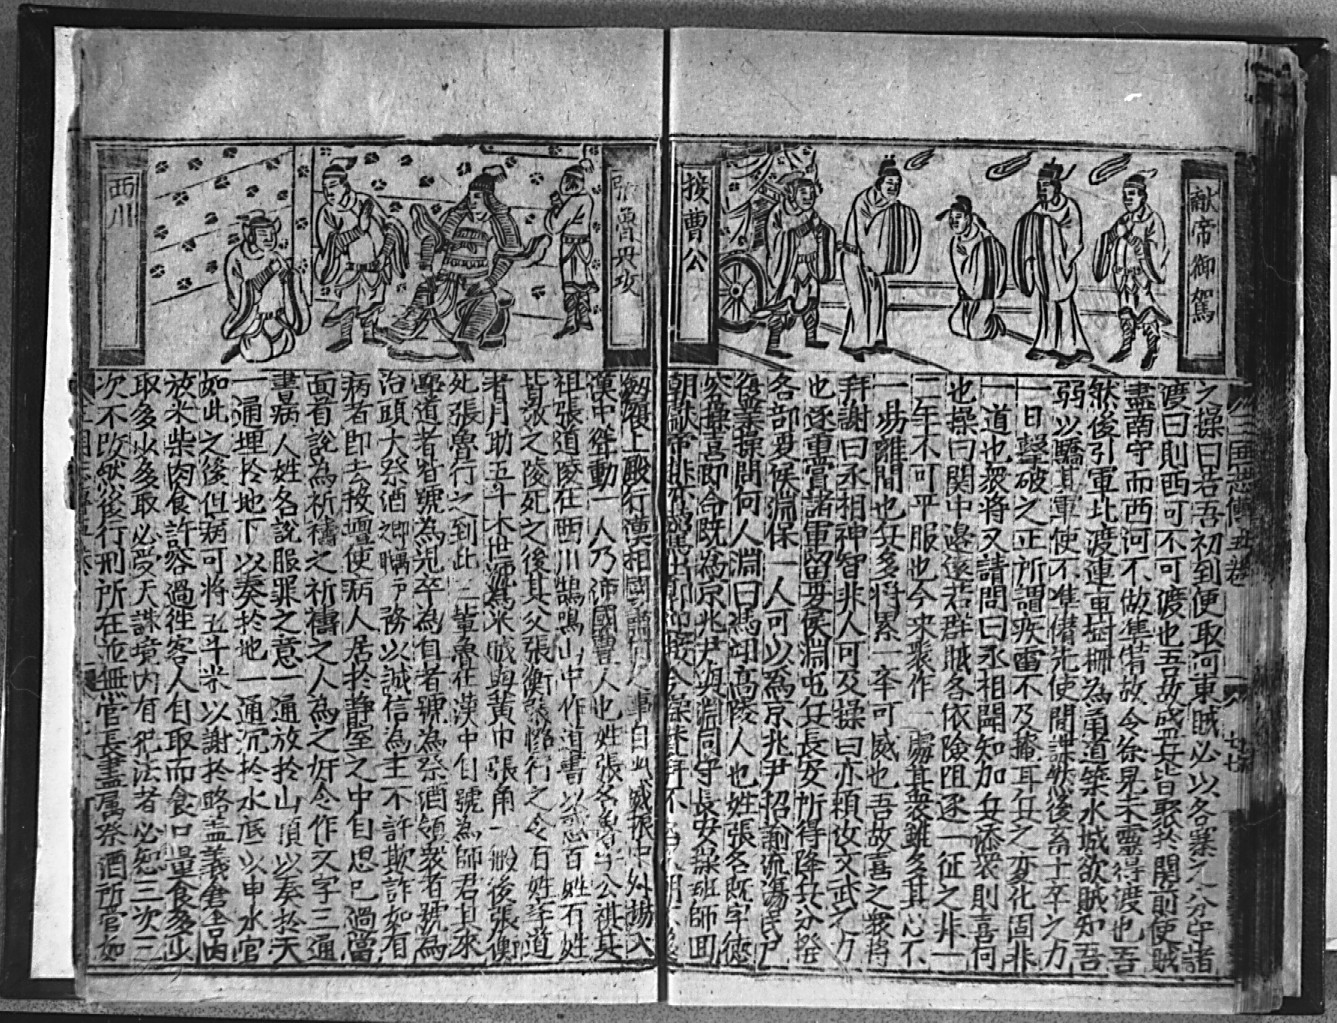 獻帝御駕
接曹公
之操曰若吾初到便取河東賊必以各寨分守諸
渡曰則西可不可渡也吾故盛兵皆聚於關前使賊
盡南守而西河不做準備故令徐晃朱靈得渡也吾
然後引軍北渡連車樹柵為甬道築水城欲賊知吾
弱以驕其軍使不準備先使間諜然後畜士卒之力
一日擊破之正所謂疾雷不及掩耳兵之变化固非
一道也衆將又請問曰丞相聞知加兵添衆則喜何
也操曰関中邊遠若群賊各依險阻逐一征之非一
二年不可平服也今來聚作一處其衆雖多其心不
一易離間也兵多將累一卒可滅也吾故喜之衆將
拜謝曰丞相神智非人可及操曰亦頼汝文武之力
也逐重賞諸軍留夏侯淵屯兵長安所得降兵分撥
各部夏侯淵保一人可以為京兆尹招諭流蕩民戶
復業操問何人淵曰馮翊高陵人也姓張名既字德
容操喜即令既為京兆尹與淵同守長安操班師回
朝獻帝排鑾駕出郭迎接
張魯畀攻
西川
漢中聳動一人乃沛國豐人也姓張名魯字公祺其
祖張道陵在西川鵠鳴山中作道書以惑百姓百姓
皆敬之陵死之後其父張衡行之令百姓
者月助五斗米世號為米賊與黃巾張角一般後張衡
死張魯行之到此二輩魯在漢中自號為師君其來
學道者皆號為鬼卒為首者號為祭酒領衆者號為
治頭大祭酒務以誠信為主不許欺詐如有
病者即去按壇使病人居於靜室之中自思已過當
面首說為祈禱之祈禱之人為之奸令作文字三通
書病人姓名說服罪之意一通放於山頂以奏於天
一通埋於地下以奏於地一通沉於水底以申水官
如此之後但病可將五斗米以謝於路蓋義倉舍內
放米柴肉食許容過徃客人自取而食口量食多少
取多少多取必受天誅境內有犯法者必恕三次三
次不改然後行刑所在並無官長盡属祭酒所管如